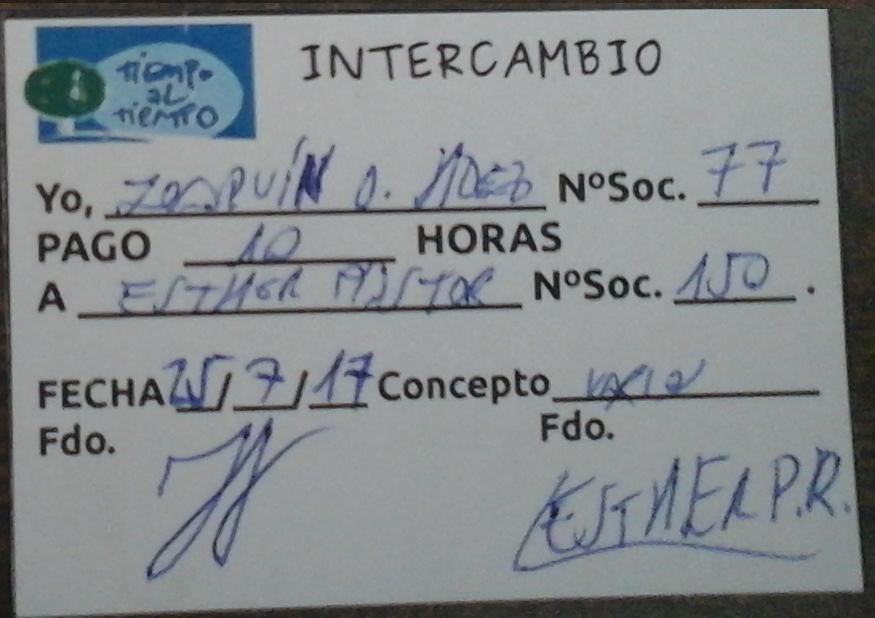 tiempo
al
tiempo
INTERCAMBIO
Yo, JOAQUÍN NºSoc. 77
PAGO 10 HORAS
A ESTHER PASTOR NºSoc. 150.
FECHA 25/7/17 Concepto
Fdo. Fdo.
ESTHER P.R.